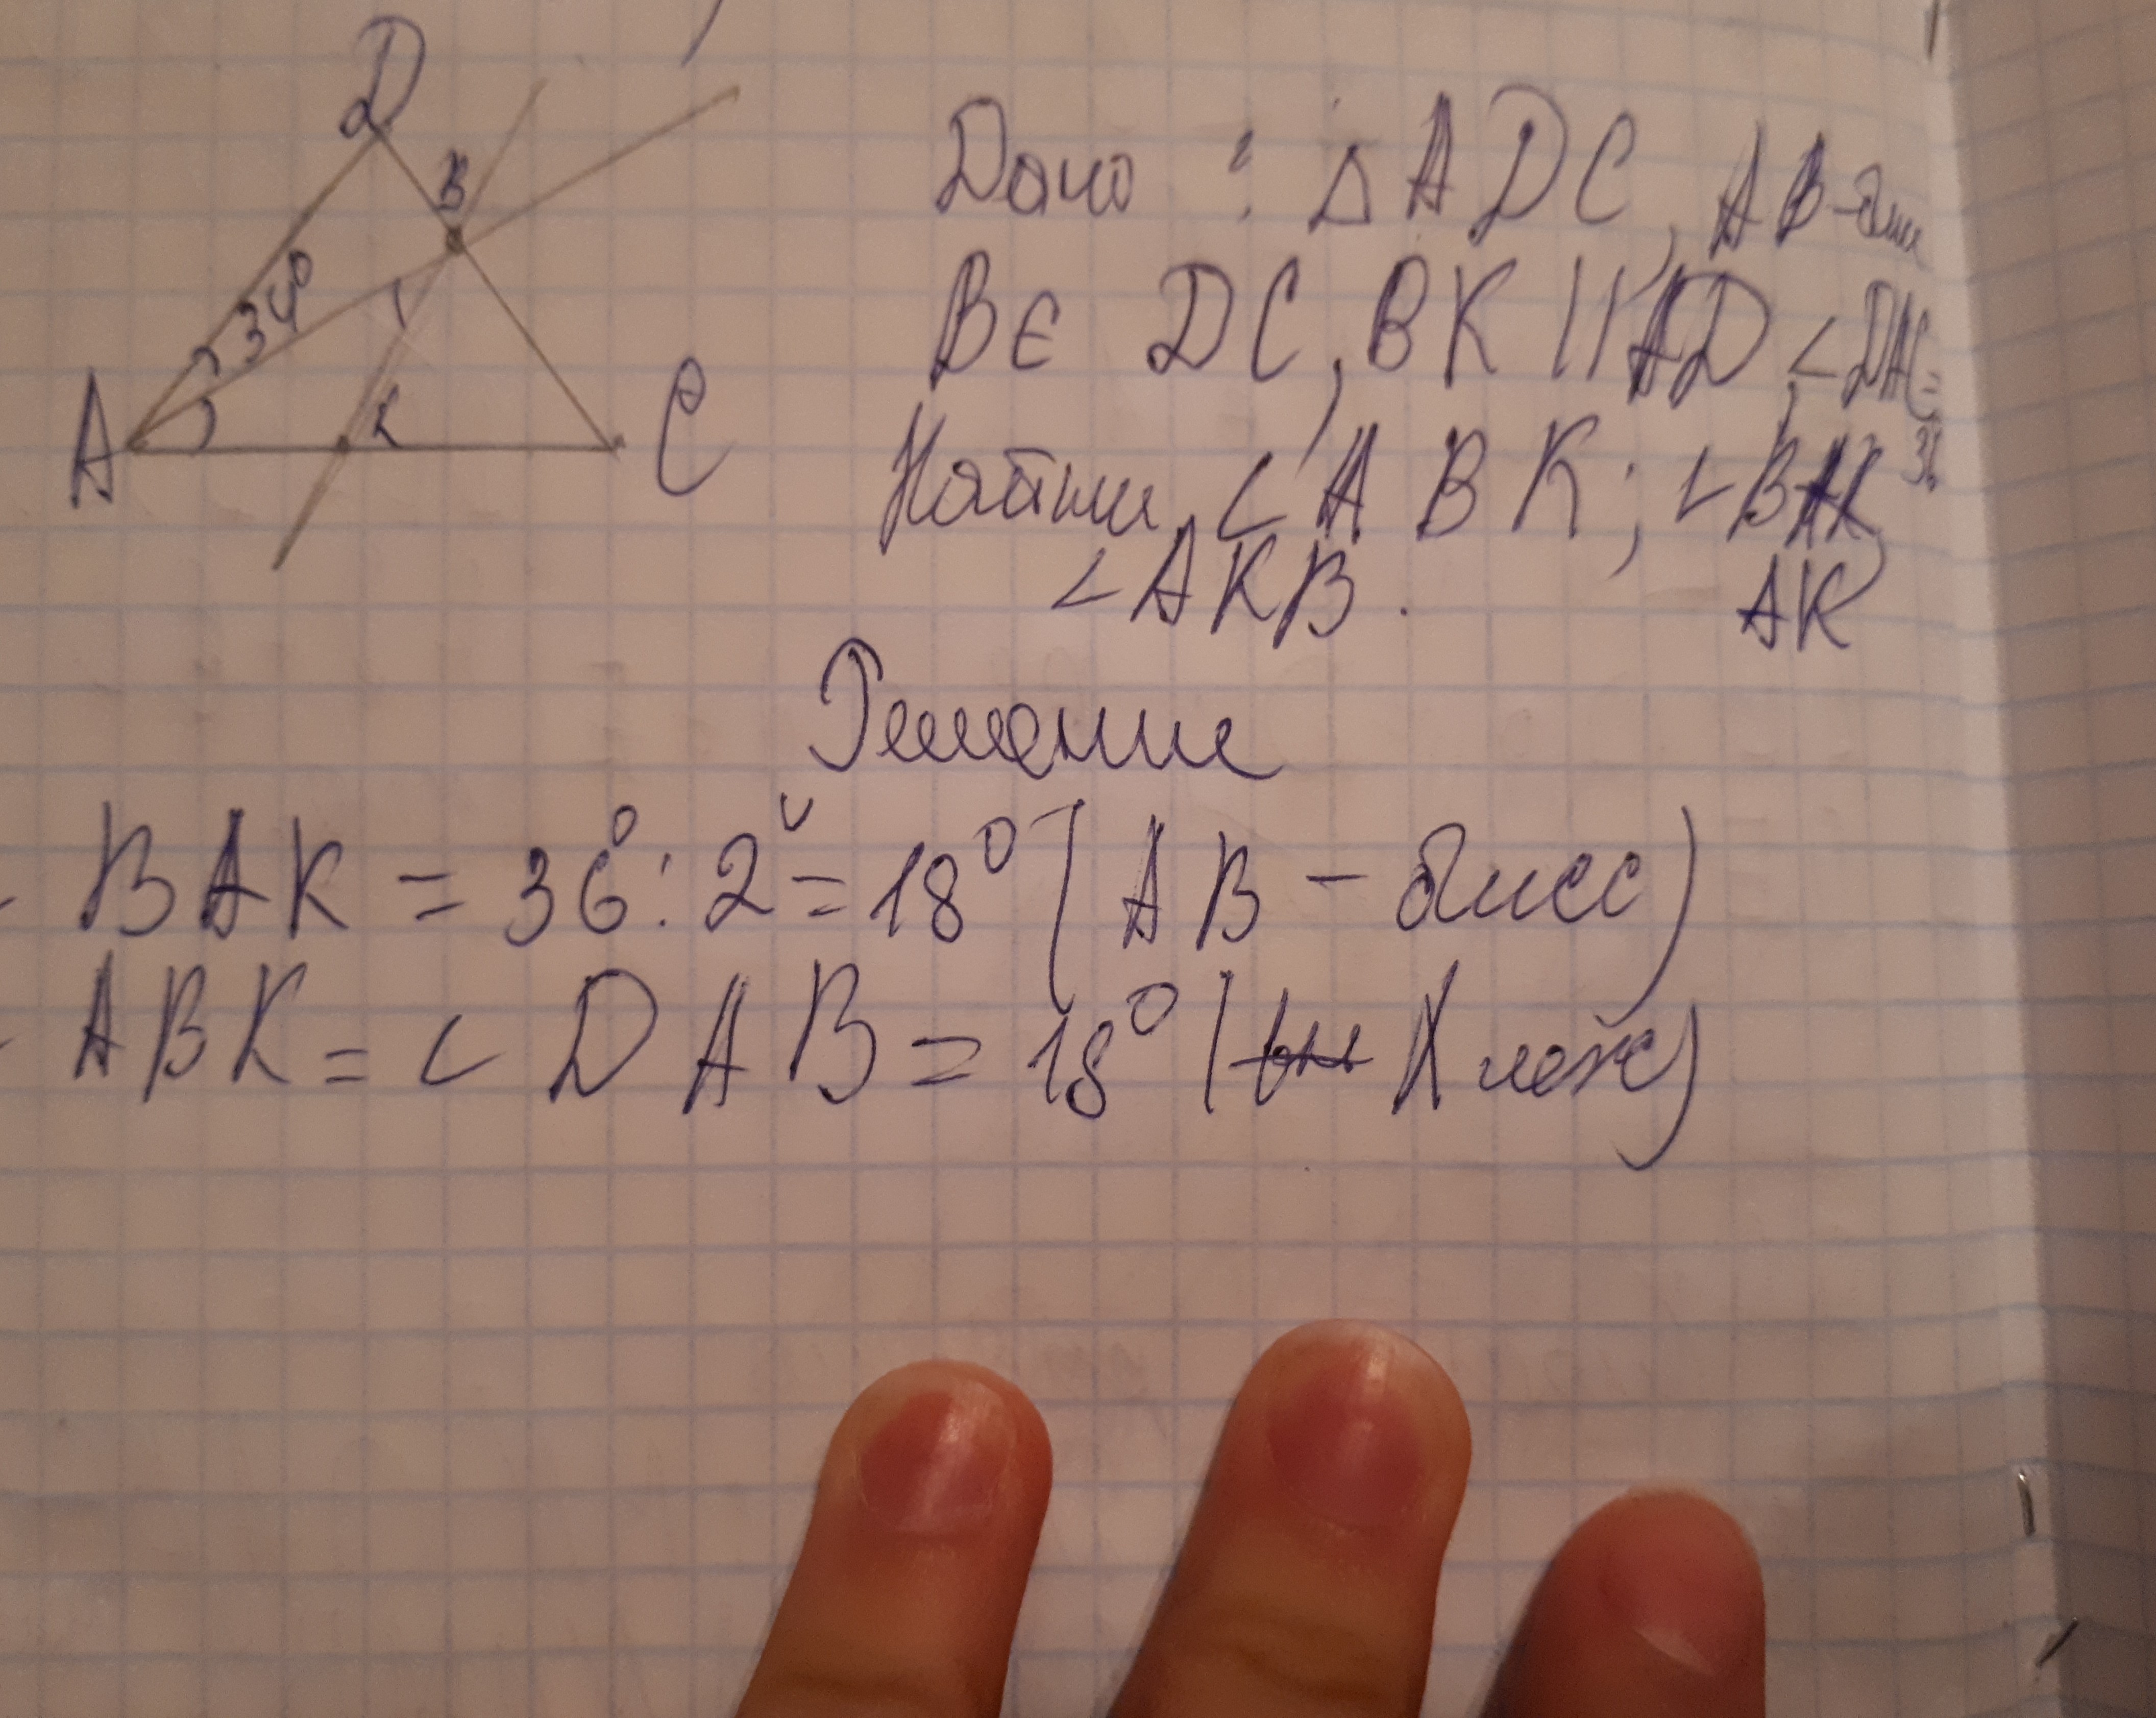 D
B
34°
1
2
A
K
C
Дано: △ADC, AB-бисс
B∈ DC, BK || AD, ∠DAC=
36
Найти ∠ABK; ∠BAK
∠AKB.
AK
Решение
BAK = 36°:2 = 18° (AB - бисс)
ABK = ∠DAB = 18° (Хлеж)